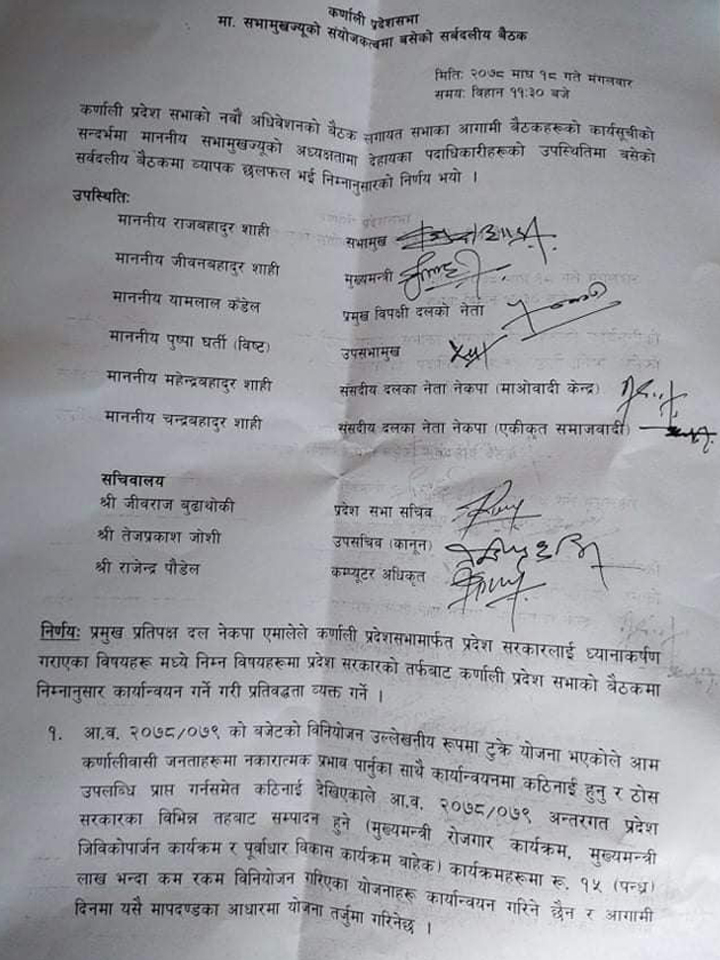 कर्णाली प्रदेशसभा
मा. सभामुखज्यूको संयोजकत्वमा बसेको सर्वदलीय बैठक
मितिः २०७८ माघ १८ गते मंगलवार
समयः विहान ११ः३० बजे
कर्णाली प्रदेश सभाको नवौं अधिवेशनको बैठक लगायत सभाका आगामी बैठकहरूको कार्यसूचीको
सन्दर्भमा माननीय सभामुखज्यूको अध्यक्षतामा देहायका पदाधिकारीहरूको उपस्थितिमा बसेको
सर्वदलीय बैठकमा व्यापक छलफल भई निम्नानुसारको निर्णय भयो ।
उपस्थितिः
माननीय राजबहादुर शाही सभामुख
माननीय जीवनबहादुर शाही मुख्यमन्त्री
माननीय यामलाल कँडेल प्रमुख विपक्षी दलको नेता
माननीय पुष्पा घर्ती (विष्ट) उपसभामुख
माननीय महेन्द्रबहादुर शाही संसदीय दलका नेता नेकपा (माओवादी केन्द्र)
माननीय चन्द्रबहादुर शाही संसदीय दलका नेता नेकपा (एकीकृत समाजवादी)
सचिवालय
श्री जीवराज बुढाथोकी प्रदेश सभा सचिव
श्री तेजप्रकाश जोशी उपसचिव (कानून)
श्री राजेन्द्र पौडेल कम्प्यूटर अधिकृत
निर्णयः प्रमुख प्रतिपक्ष दल नेकपा एमालेले कर्णाली प्रदेशसभामार्फत प्रदेश सरकारलाई ध्यानाकर्षण
गराएका विषयहरू मध्ये निम्न विषयहरूमा प्रदेश सरकारको तर्फबाट कर्णाली प्रदेश सभाको बैठकमा
निम्नानुसार कार्यान्वयन गर्ने गरी प्रतिवद्धता व्यक्त गर्ने ।
१. आ.व. २०७८/०७९ को बजेटको विनियोजन उल्लेखनीय रूपमा टुक्रे योजना भएकोले आम
कर्णालीवासी जनताहरूमा नकारात्मक प्रभाव पार्नुका साथै कार्यान्वयनमा कठिनाई हुनु र ठोस
उपलब्धि प्राप्त गर्नसमेत कठिनाई देखिएकाले आ.व. २०७८/०७९ अन्तरगत प्रदेश
सरकारका विभिन्न तहवाट सम्पादन हुने (मुख्यमन्त्री रोजगार कार्यक्रम, मुख्यमन्त्री
जिविकोपार्जन कार्यक्रम र पूर्वाधार विकास कार्यक्रम वाहेक) कार्यक्रमहरूमा रू. १५ (पन्ध्र)
लाख भन्दा कम रकम विनियोजन गरिएका योजनाहरू कार्यान्वयन गरिने छैन र आगामी
दिनमा यसै मापदण्डका आधारमा योजना तर्जुमा गरिनेछ ।